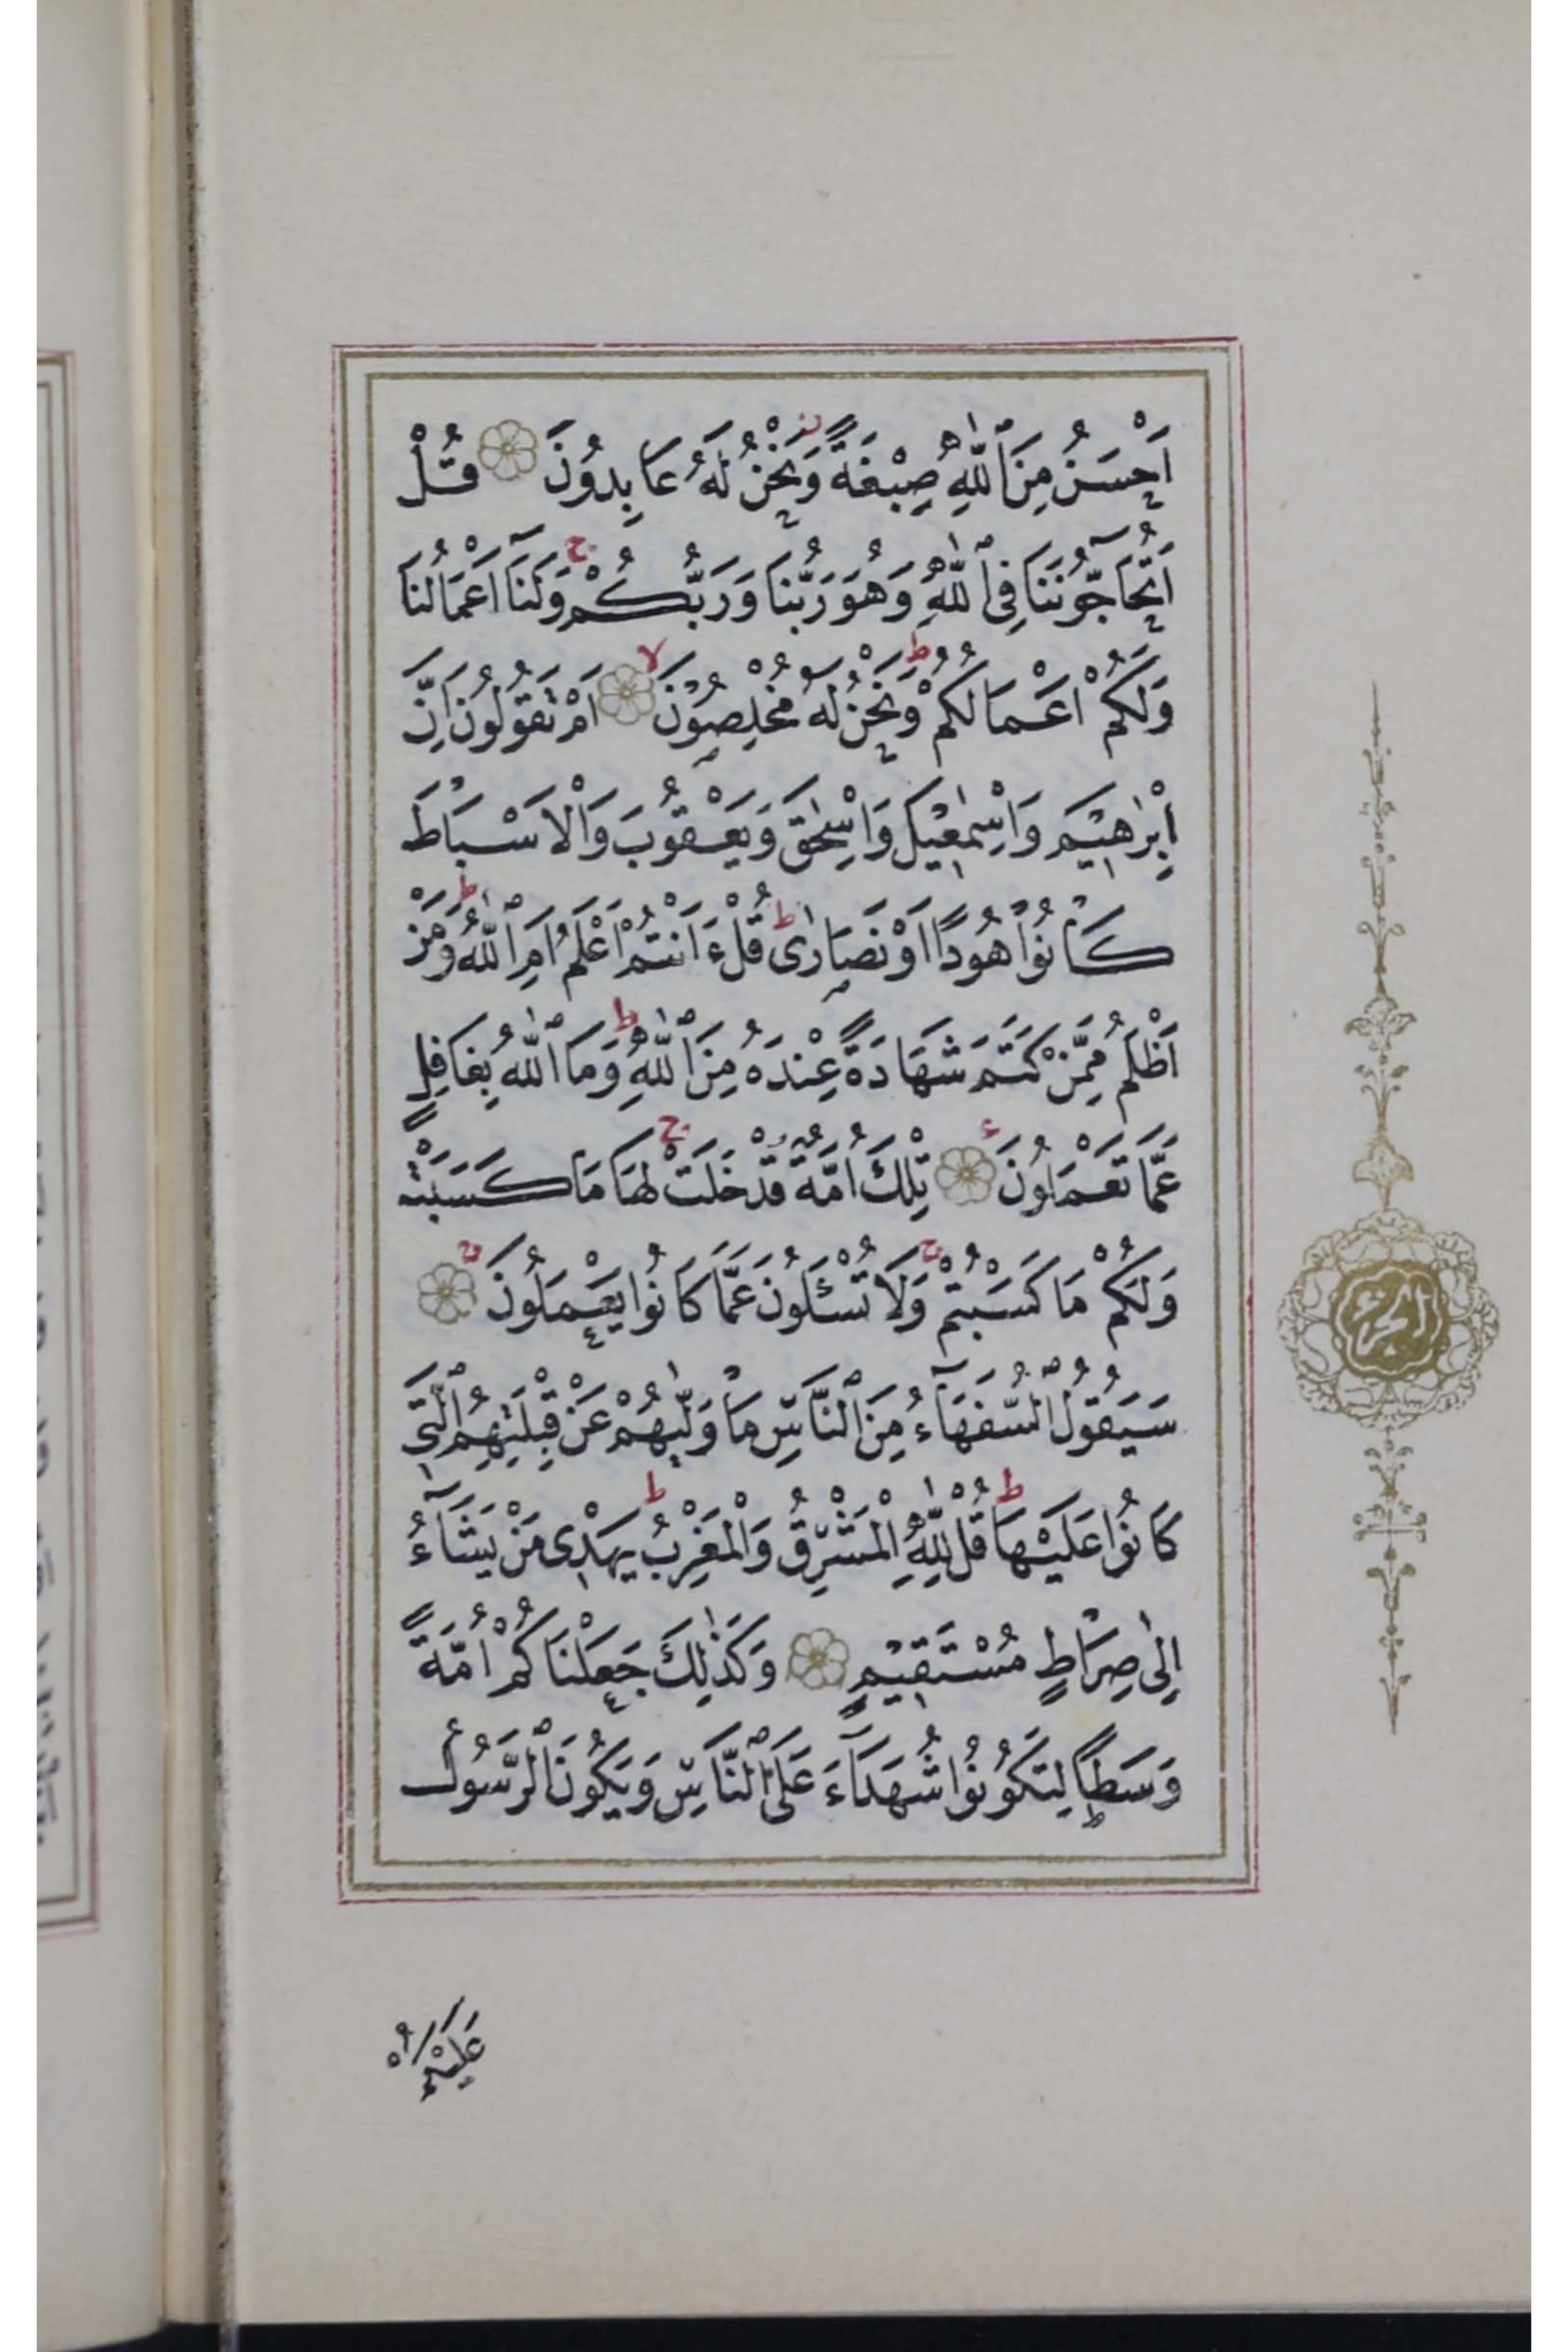 اَحْسَنُ مِنَ ٱللّٰهِ صِبْغَةً ز وَنَحْنُ لَهُ عَابِدُونَ قُلْ
اَتُحَآجُّونَنَا فِى ٱللّٰهِ وَهُوَ رَبُّنَا وَرَبُّكُمْ ج وَلَنَآ اَعْمَالُنَا
وَلَكُمْ اَعْمَالُكُمْ ط وَنَحْنُ لَهُ مُخْلِصُونَ لا اَمْ تَقُولُونَ اِنَّ
اِبْرٰهِيمَ وَاِسْمٰعِيلَ وَاِسْحٰقَ وَيَعْقُوبَ وَالْاَسْبَاطَ
كَانُوا هُودًا اَوْ نَصَارٰى ط قُلْ ءَاَنْتُمْ اَعْلَمُ اَمِ ٱللّٰهُ ط وَمَنْ
اَظْلَمُ مِمَّنْ كَتَمَ شَهَادَةً عِنْدَهُ مِنَ ٱللّٰهِ ط وَمَا ٱللّٰهُ بِغَافِلٍ
عَمَّا تَعْمَلُونَ تِلْكَ اُمَّةٌ قَدْ خَلَتْ ج لَهَا مَا كَسَبَتْ
وَلَكُمْ مَا كَسَبْتُمْ ج وَلَا تُسْئَلُونَ عَمَّا كَانُوا يَعْمَلُونَ
سَيَقُولُ ٱلسُّفَهَآءُ مِنَ ٱلنَّاسِ مَا وَلّٰيهُمْ عَنْ قِبْلَتِهِمُ ٱلَّتِى
كَانُوا عَلَيْهَا ط قُلْ لِلّٰهِ الْمَشْرِقُ وَالْمَغْرِبُ ط يَهْدِى مَنْ يَشَآءُ
اِلٰى صِرَاطٍ مُسْتَقِيمٍ وَكَذٰلِكَ جَعَلْنَاكُمْ اُمَّةً
وَسَطًا لِتَكُونُوا شُهَدَآءَ عَلَى ٱلنَّاسِ وَيَكُونَ ٱلرَّسُولُ
عَلَيْكُمْ